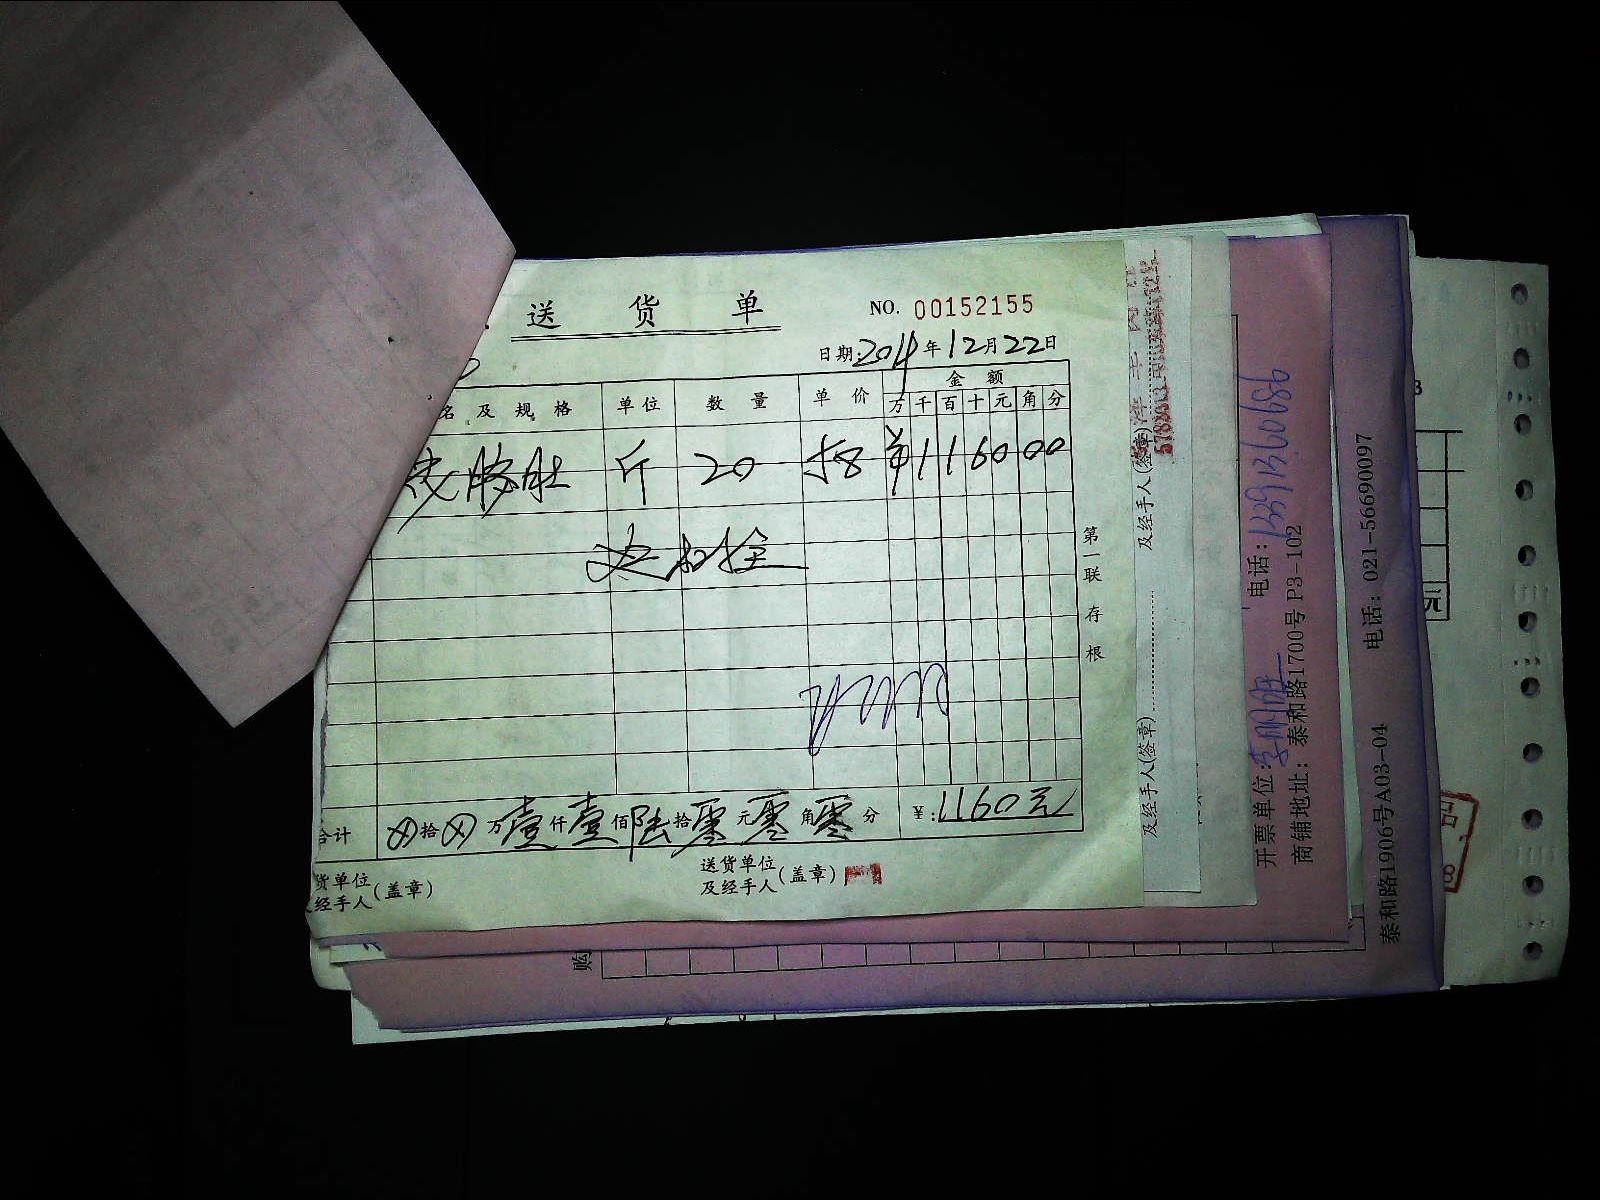 送 货 单
NO. 00152155
日期:2014年12月22日
名 及 规 格 单位 数 量 单 价 金 额
万 千 百 十 元 角 分
斤 20 58 ¥1160 00
第一联 存根
合计 拾 万 壹 仟 壹 佰 陆 拾 零 元 零 角 零 分 ¥:1160元
货单位
经手人(盖章)
送货单位
及经手人(盖章)
及经手人(签章)
及经手人(签章)
开票单位:李明胜 电话:13391360686
商铺地址: 泰和路1700号 P3-102
泰和路1906号A03-04 电话: 021-56690097
元
购